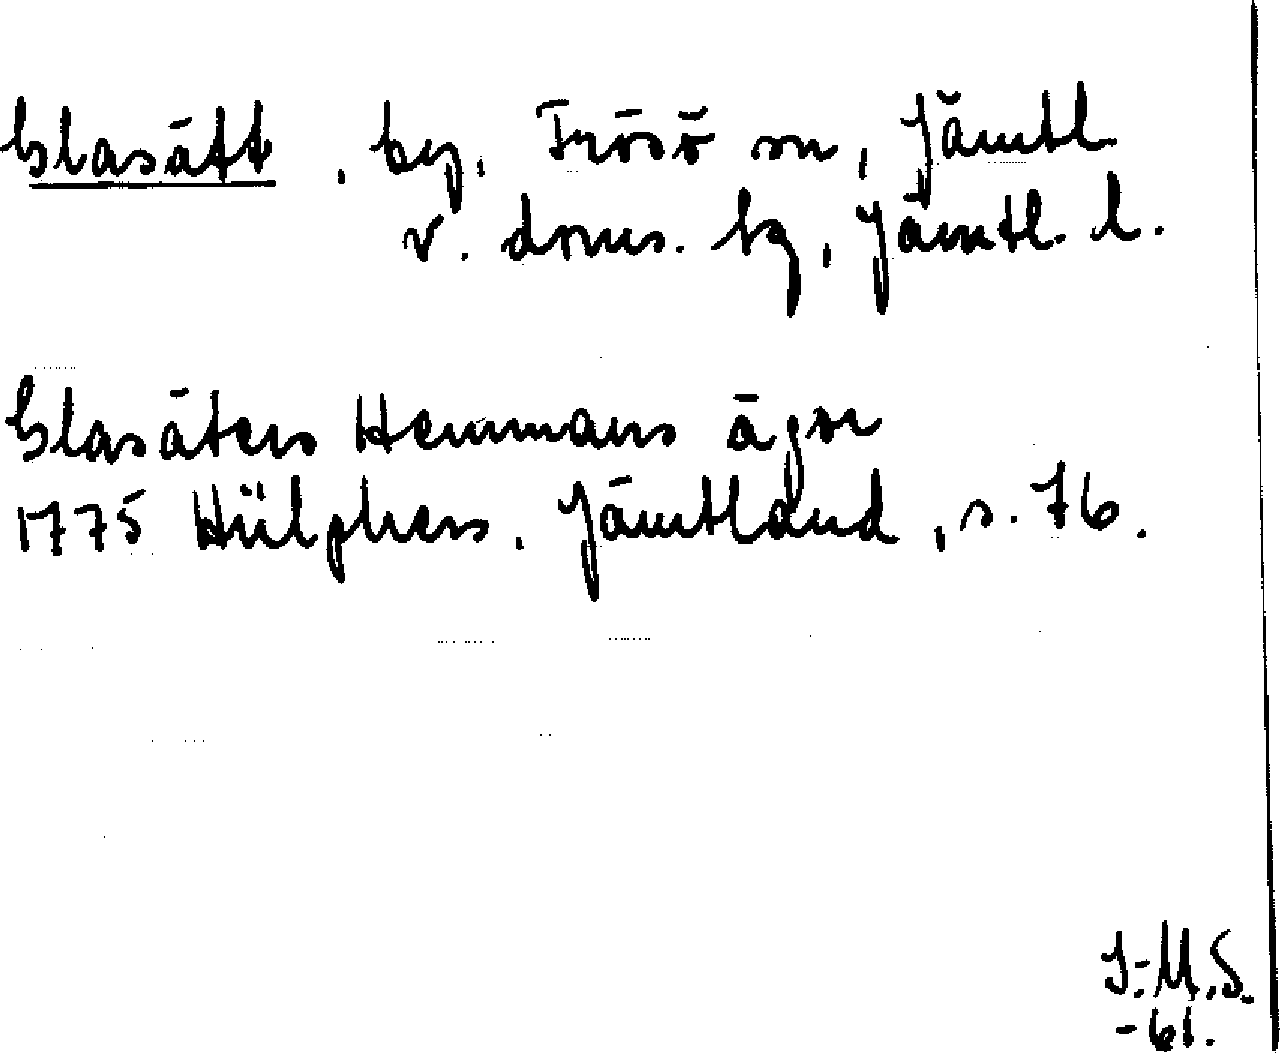 Glasätt, by, Frösö sn, Jämtl
v. doms. hg, Jämtl. l.
Glasäters Hemmans ägor
1775 Hülphers. Jämtland, s. 76.
I.-M.S.
-61.